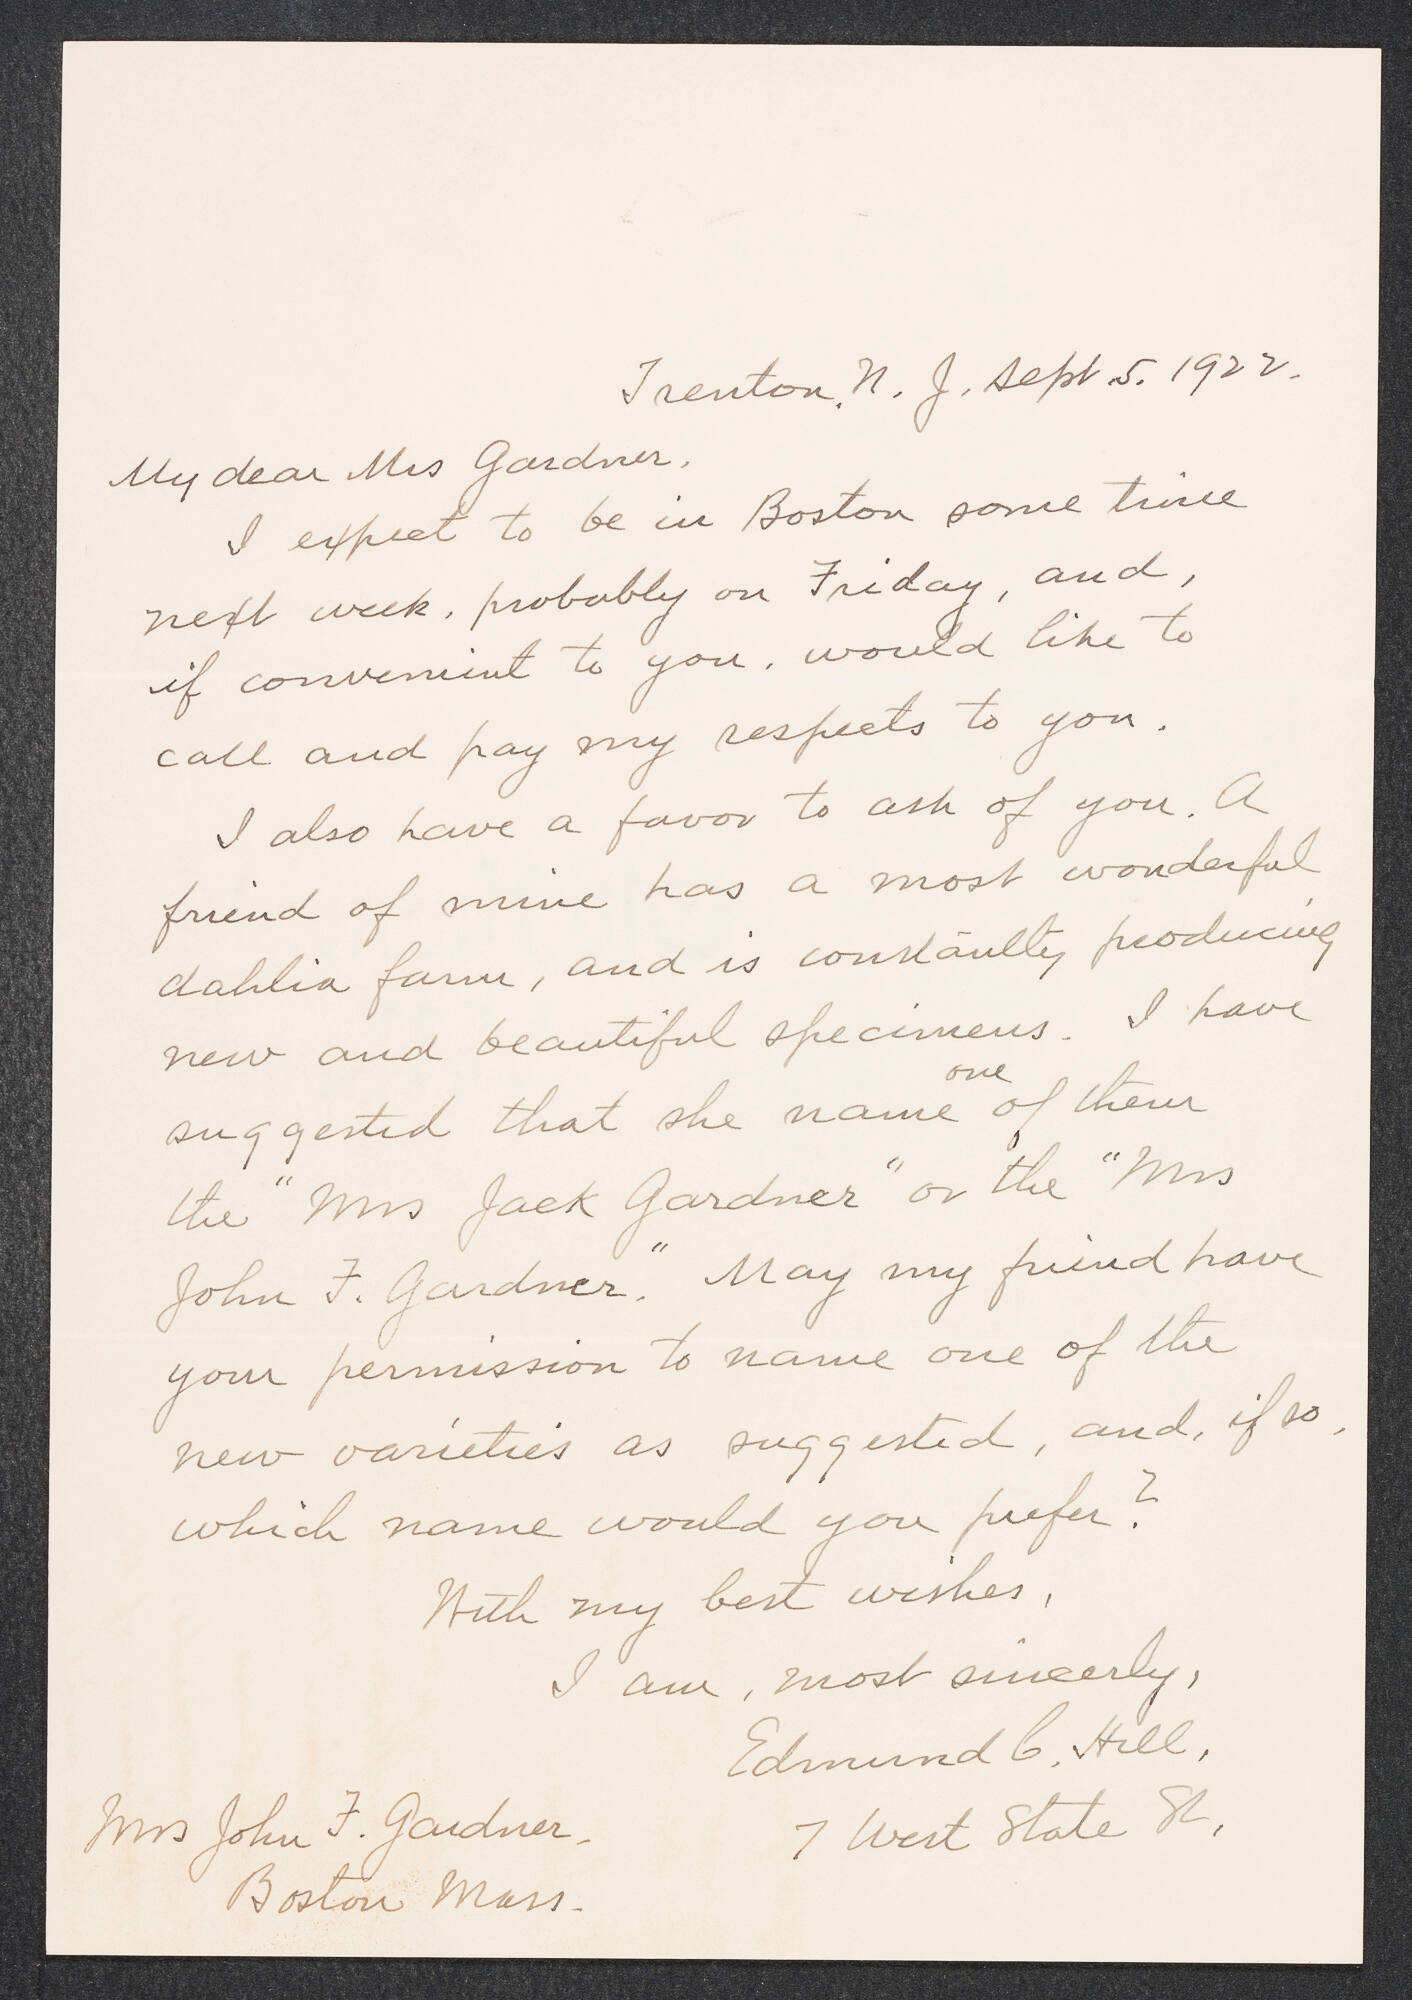 Trenton, N. J. Sept 5. 1922.
My dear Mrs Gardner.
I expect to be in Boston some time
next week, probably on Friday, and,
if convenient to you, would like to
call and pay my respects to you.
I also have a favor to ask of you. A
friend of mine has a most wonderful
dahlia farm, and is constantly producing
new and beautiful specimens. I have
suggested that she name one of them
the "Mrs Jack Gardner" or the "Mrs
John F. Gardner." May my friend have
your permission to name one of the
new varieties as suggested, and, if so,
which name would you prefer?
With my best wishes,
I am, most sincerly,
Edmund C. Hill,
7 West State St,
Mrs John F. Gardner.
Boston Mass.